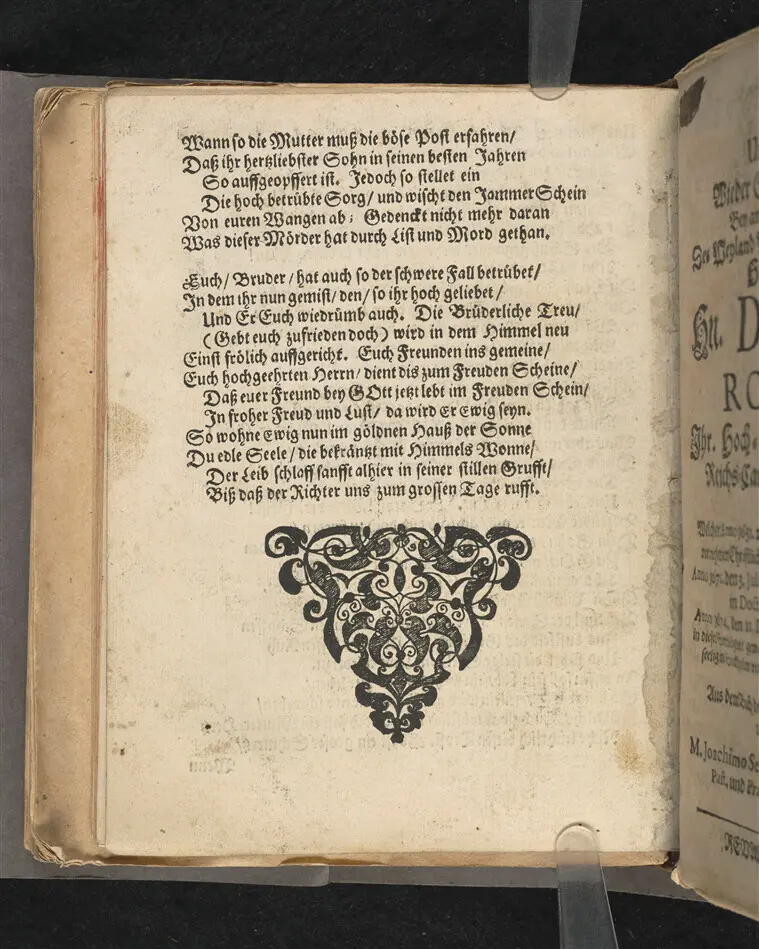 Wann so die Mutter muß die böse Post erfahren/
Daß ihr hertzliebster Sohn in seinen besten Jahren
So auffgeopffert ist. Jedoch so stellet ein
Die hoch betrübte Sorg/ und wischt den JammerSchein
Von euren Wangen ab; Gedenckt nicht mehr daran
Was dieser Mörder hat durch List und Mord gethan.
Euch/ Bruder/ hat auch so der schwere Fall betrübet/
In dem ihr nun gemist/ den/ so ihr hoch geliebet/
Und Er Euch wiedrümb auch. Die Brüderliche Treu/
(Gebt euch zufrieden doch) wird in dem Himmel neu
Einst frölich auffgericht. Euch Freunden ins gemeine/
Euch hochgeehrten Herrn/ dient dis zum Freuden Scheine/
Daß euer Freund bey GOtt jetzt lebt im Freuden Schein/
In froher Freud und Lust/ da wird Er Ewig seyn.
So wohne Ewig nun im göldnen Hauß der Sonne
Du edle Seele/ die bekräntzt mit Himmels Wonne/
Der Leib schlaff sanfft alhier in seiner stillen Grufft/
Biß daß der Richter uns zum grossen Tage rufft.
Wieder
Bey
Des Weyland
Hn. D
RO
Ihr. Hoch-
Reichs
in
Aus dem
M. Joachimo
Past. und